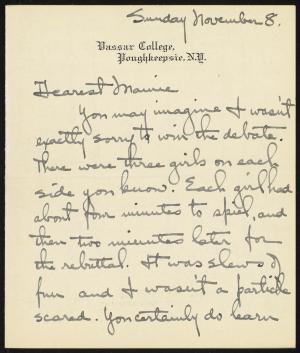 Sunday November 8.
Vassar College,
Poughkeepsie, N.Y.
Dearest Mamie
You may imagine I wasn't
exactly sorry to win the debate.
There were three girls on each
side you know. Each girl had
about four minutes to spiel, and
then two minutes later for
the rebuttal. It was slews of
fun and I wasn't a particle
scared. You certainly do learn